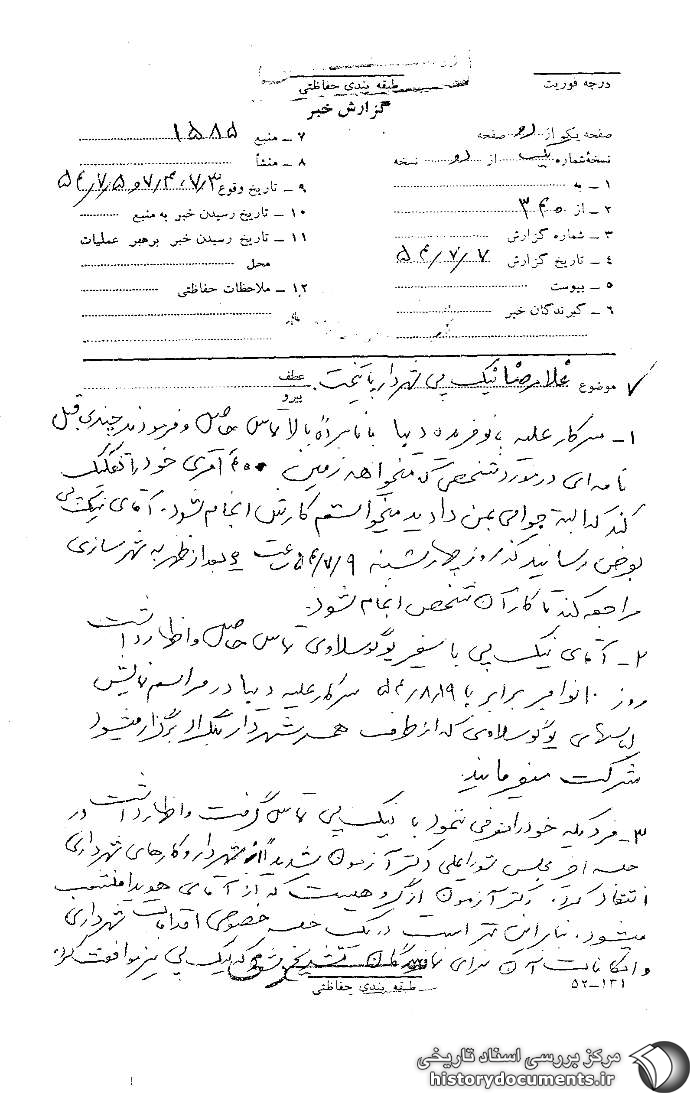 درجه فوریت
طبقه بندی حفاظتی
گزارش خبر
صفحه یک از دو صفحه
نسخهٔ شماره یک از دو نسخه
۱ ـ به
۲ ـ از ۳۴۰
۳ ـ شماره گزارش
٤ ـ تاریخ گزارش ۵۴/۷/۷
۵ ـ پیوست
۶ ـ گیرندگان خبر
۷ ـ منبع ۱۵۸۵
۸ ـ منشأ
۹ ـ تاریخ وقوع ۷/۳، ۷/۴ و ۵۴/۷/۵
۱۰ ـ تاریخ رسیدن خبر به منبع
۱۱ ـ تاریخ رسیدن خبر برهبر عملیات
محل
۱۲ ـ ملاحظات حفاظتی
موضوع غلامرضا نیک پی شهردار پایتخت
عطف
پیرو
۱ـ سرکار علیه بانو فریده دیبا با نامبرده بالا تماس حاصل و فرمودند چندی قبل
نامه‌ای در مورد شخصی که میخواهد زمین ۴۰۰ متری خود را تفکیک
کند که البته جوابی بمن دادید میخواستم کارش انجام شود. آقای نیک‌پی
بعرض رسانید که روز چهارشنبه ۵۴/۷/۹ ساعت ۴ بعد از ظهر به شهرسازی
مراجعه کند تا کار آن شخص انجام شود.
۲ـ آقای نیک پی با سفیر یوگوسلاوی تماس حاصل و اظهار داشت
روز ۱۰ نوامبر برابر با ۵۴/۸/۱۹ سرکار علیه دیبا در مراسم نمایش
لباسهای یوگوسلاوی که از طرف همسر شهردار بلگراد برگزار میشود
شرکت میفرمایند.
۳ـ فردیکه خود را معرفی ننمود با نیک پی تماس گرفت و اظهار داشت در
جلسه اخیر مجلس شورایملی دکتر آزمون شدیداً از شهردار و کارهای شهرداری
انتقاد کرد. دکتر آزمون از گروهیست که از آقای هویدا منشعب
میشود. بنابراین بهتر است در یک جلسه خصوصی اقدامات شهرداری
و امکانات آن برای نمایندگان تشریح شود که نیک پی نیز موافقت کرد.
طبقه بندی حفاظتی
۵۲-۱۳۱
مرکز بررسی اسناد تاریخی
historydocuments.ir